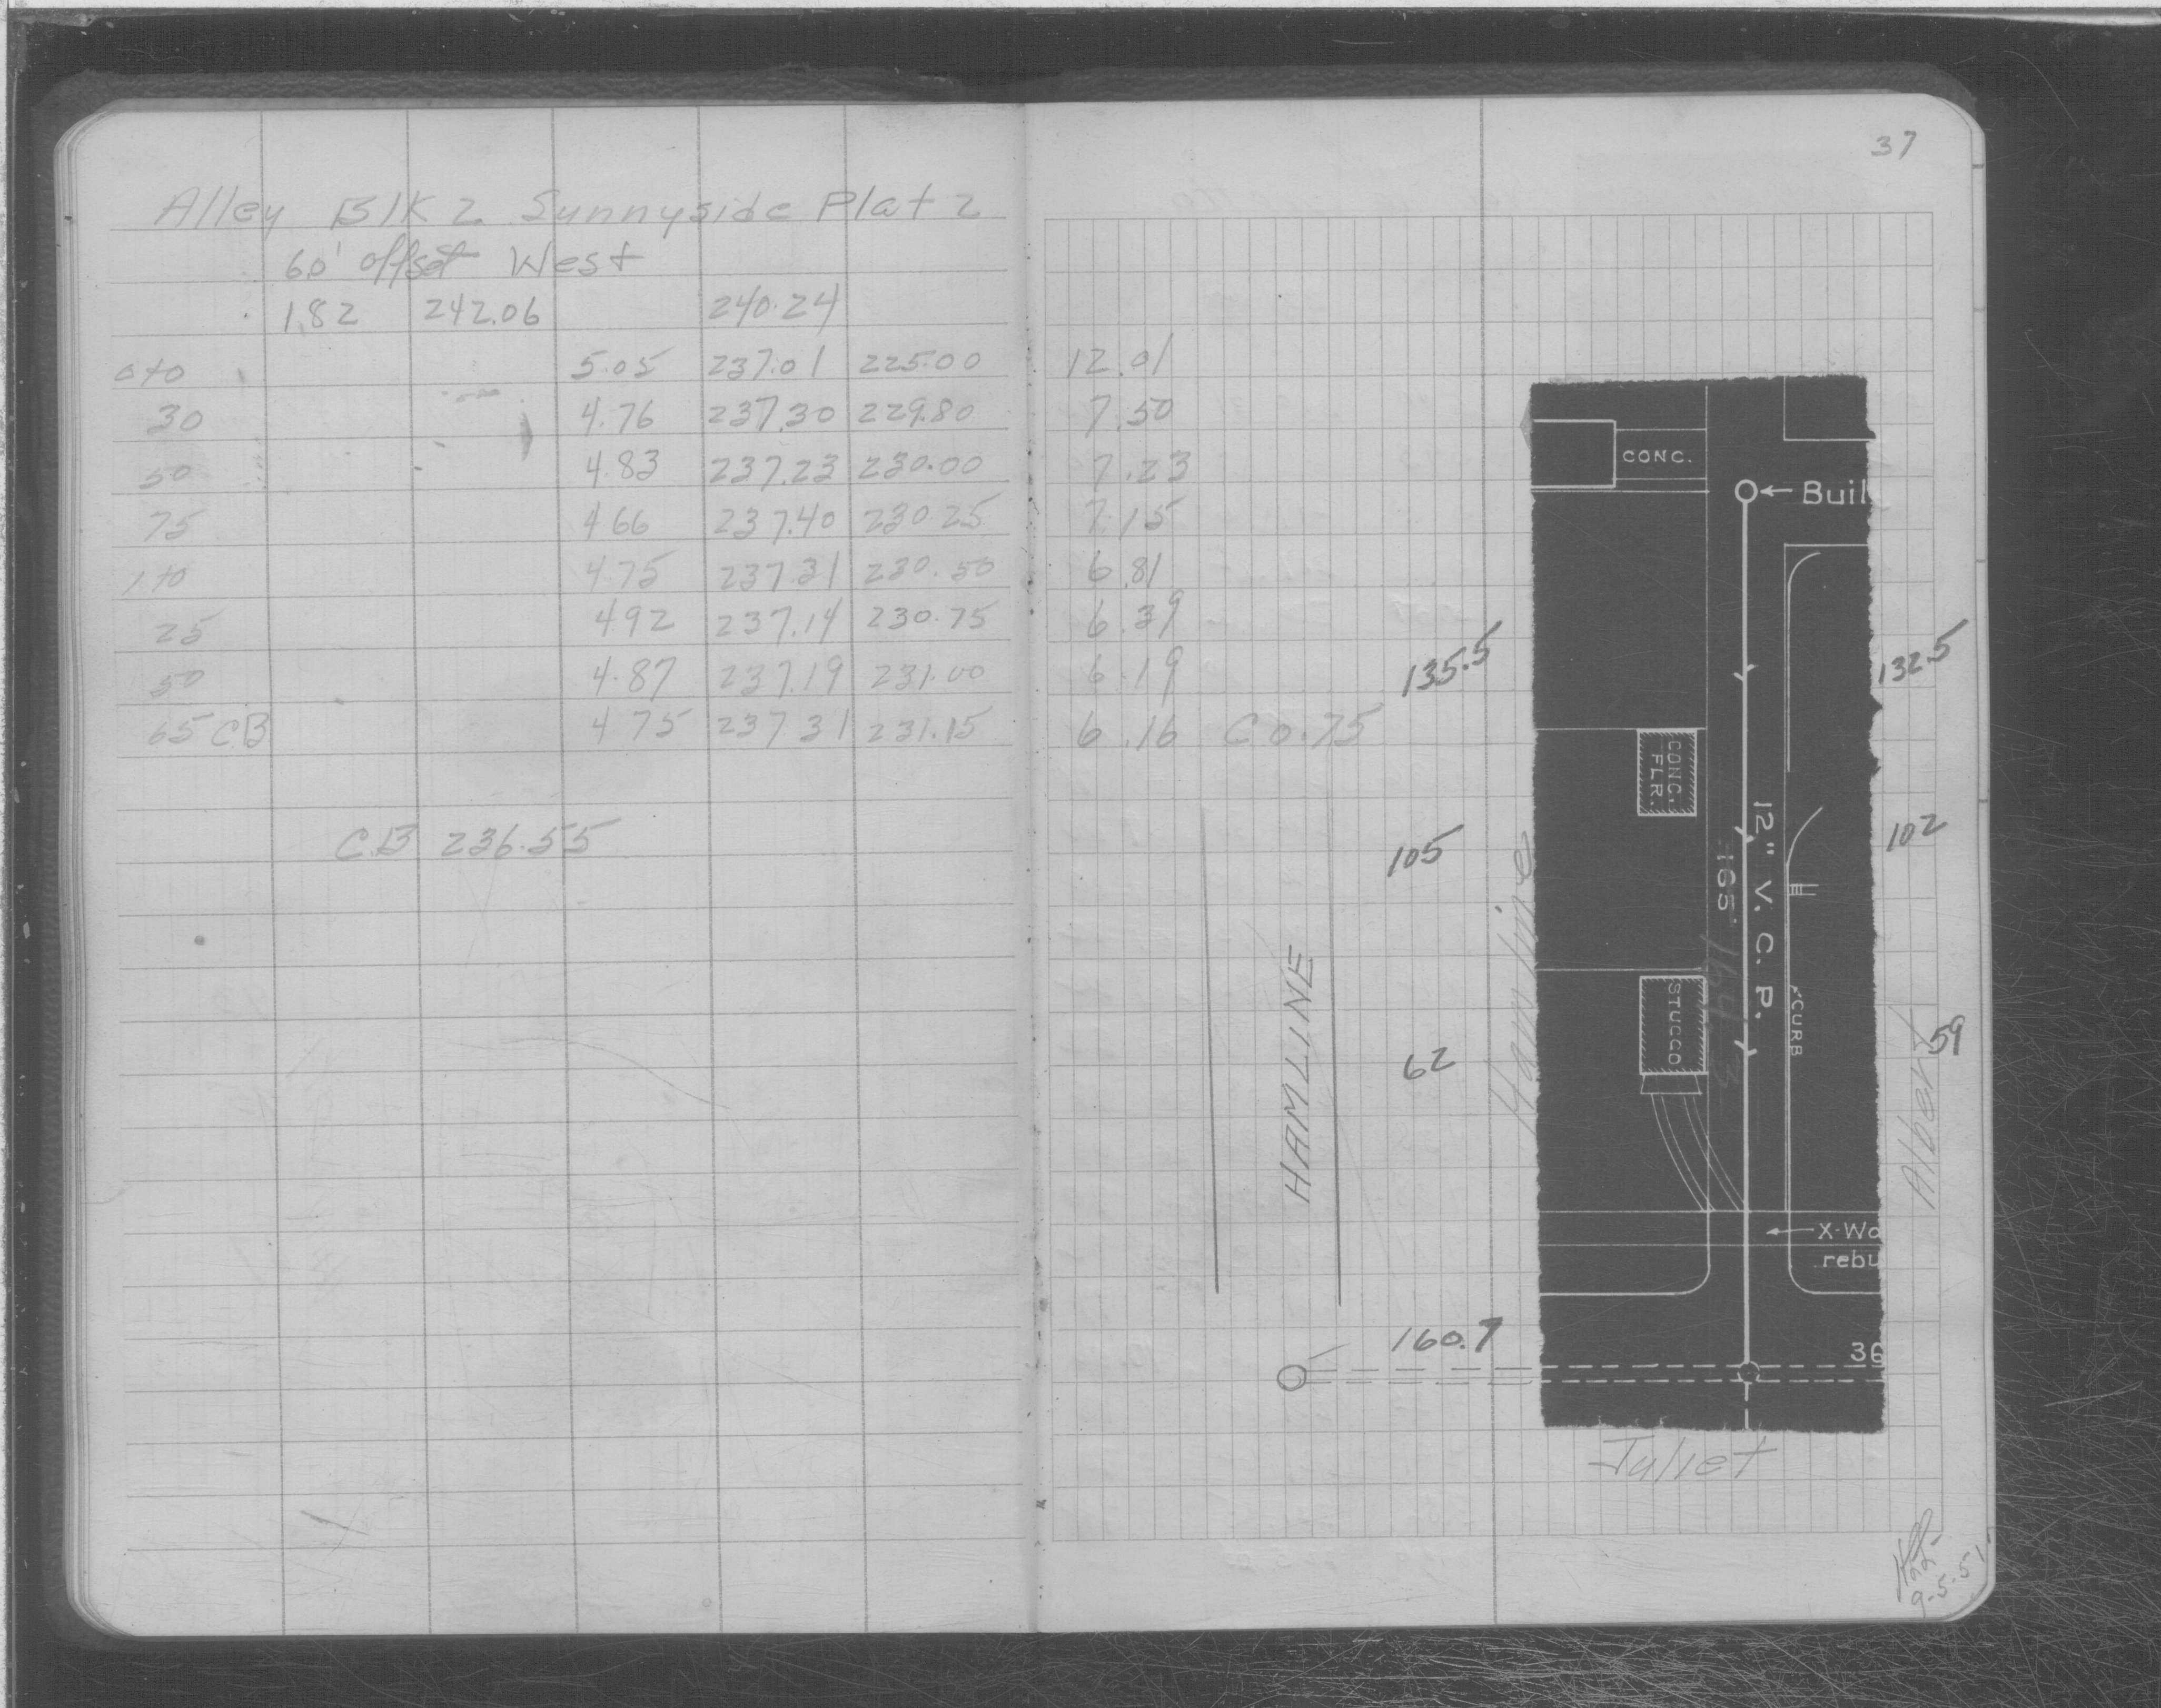 37
Alley Blk 2 Sunnyside Plat 2
6.0' offset West
1.82 242.06 240.24
0+0 5.05 237.01 225.00 12.01
30 4.76 237.30 229.80 7.50
50 4.83 237.23 230.00 7.23
75 4.66 237.40 230.25 7.15
1+0 4.75 237.31 230.50 6.81
25 4.92 237.14 230.75 6.39
50 4.87 237.19 231.00 6.19
65 CB 4.75 237.31 231.15 6.16 C 0.75
CB 236.55
CONC.
Buil
135.5
132.5
CONC.
FLR.
12" V. C. P.
165'
105
102
Hamline
HAMLINE
STUCCO
CURB
62
59
Albert
X-Wa
rebu
160.7
36
Juliet
9-5-51